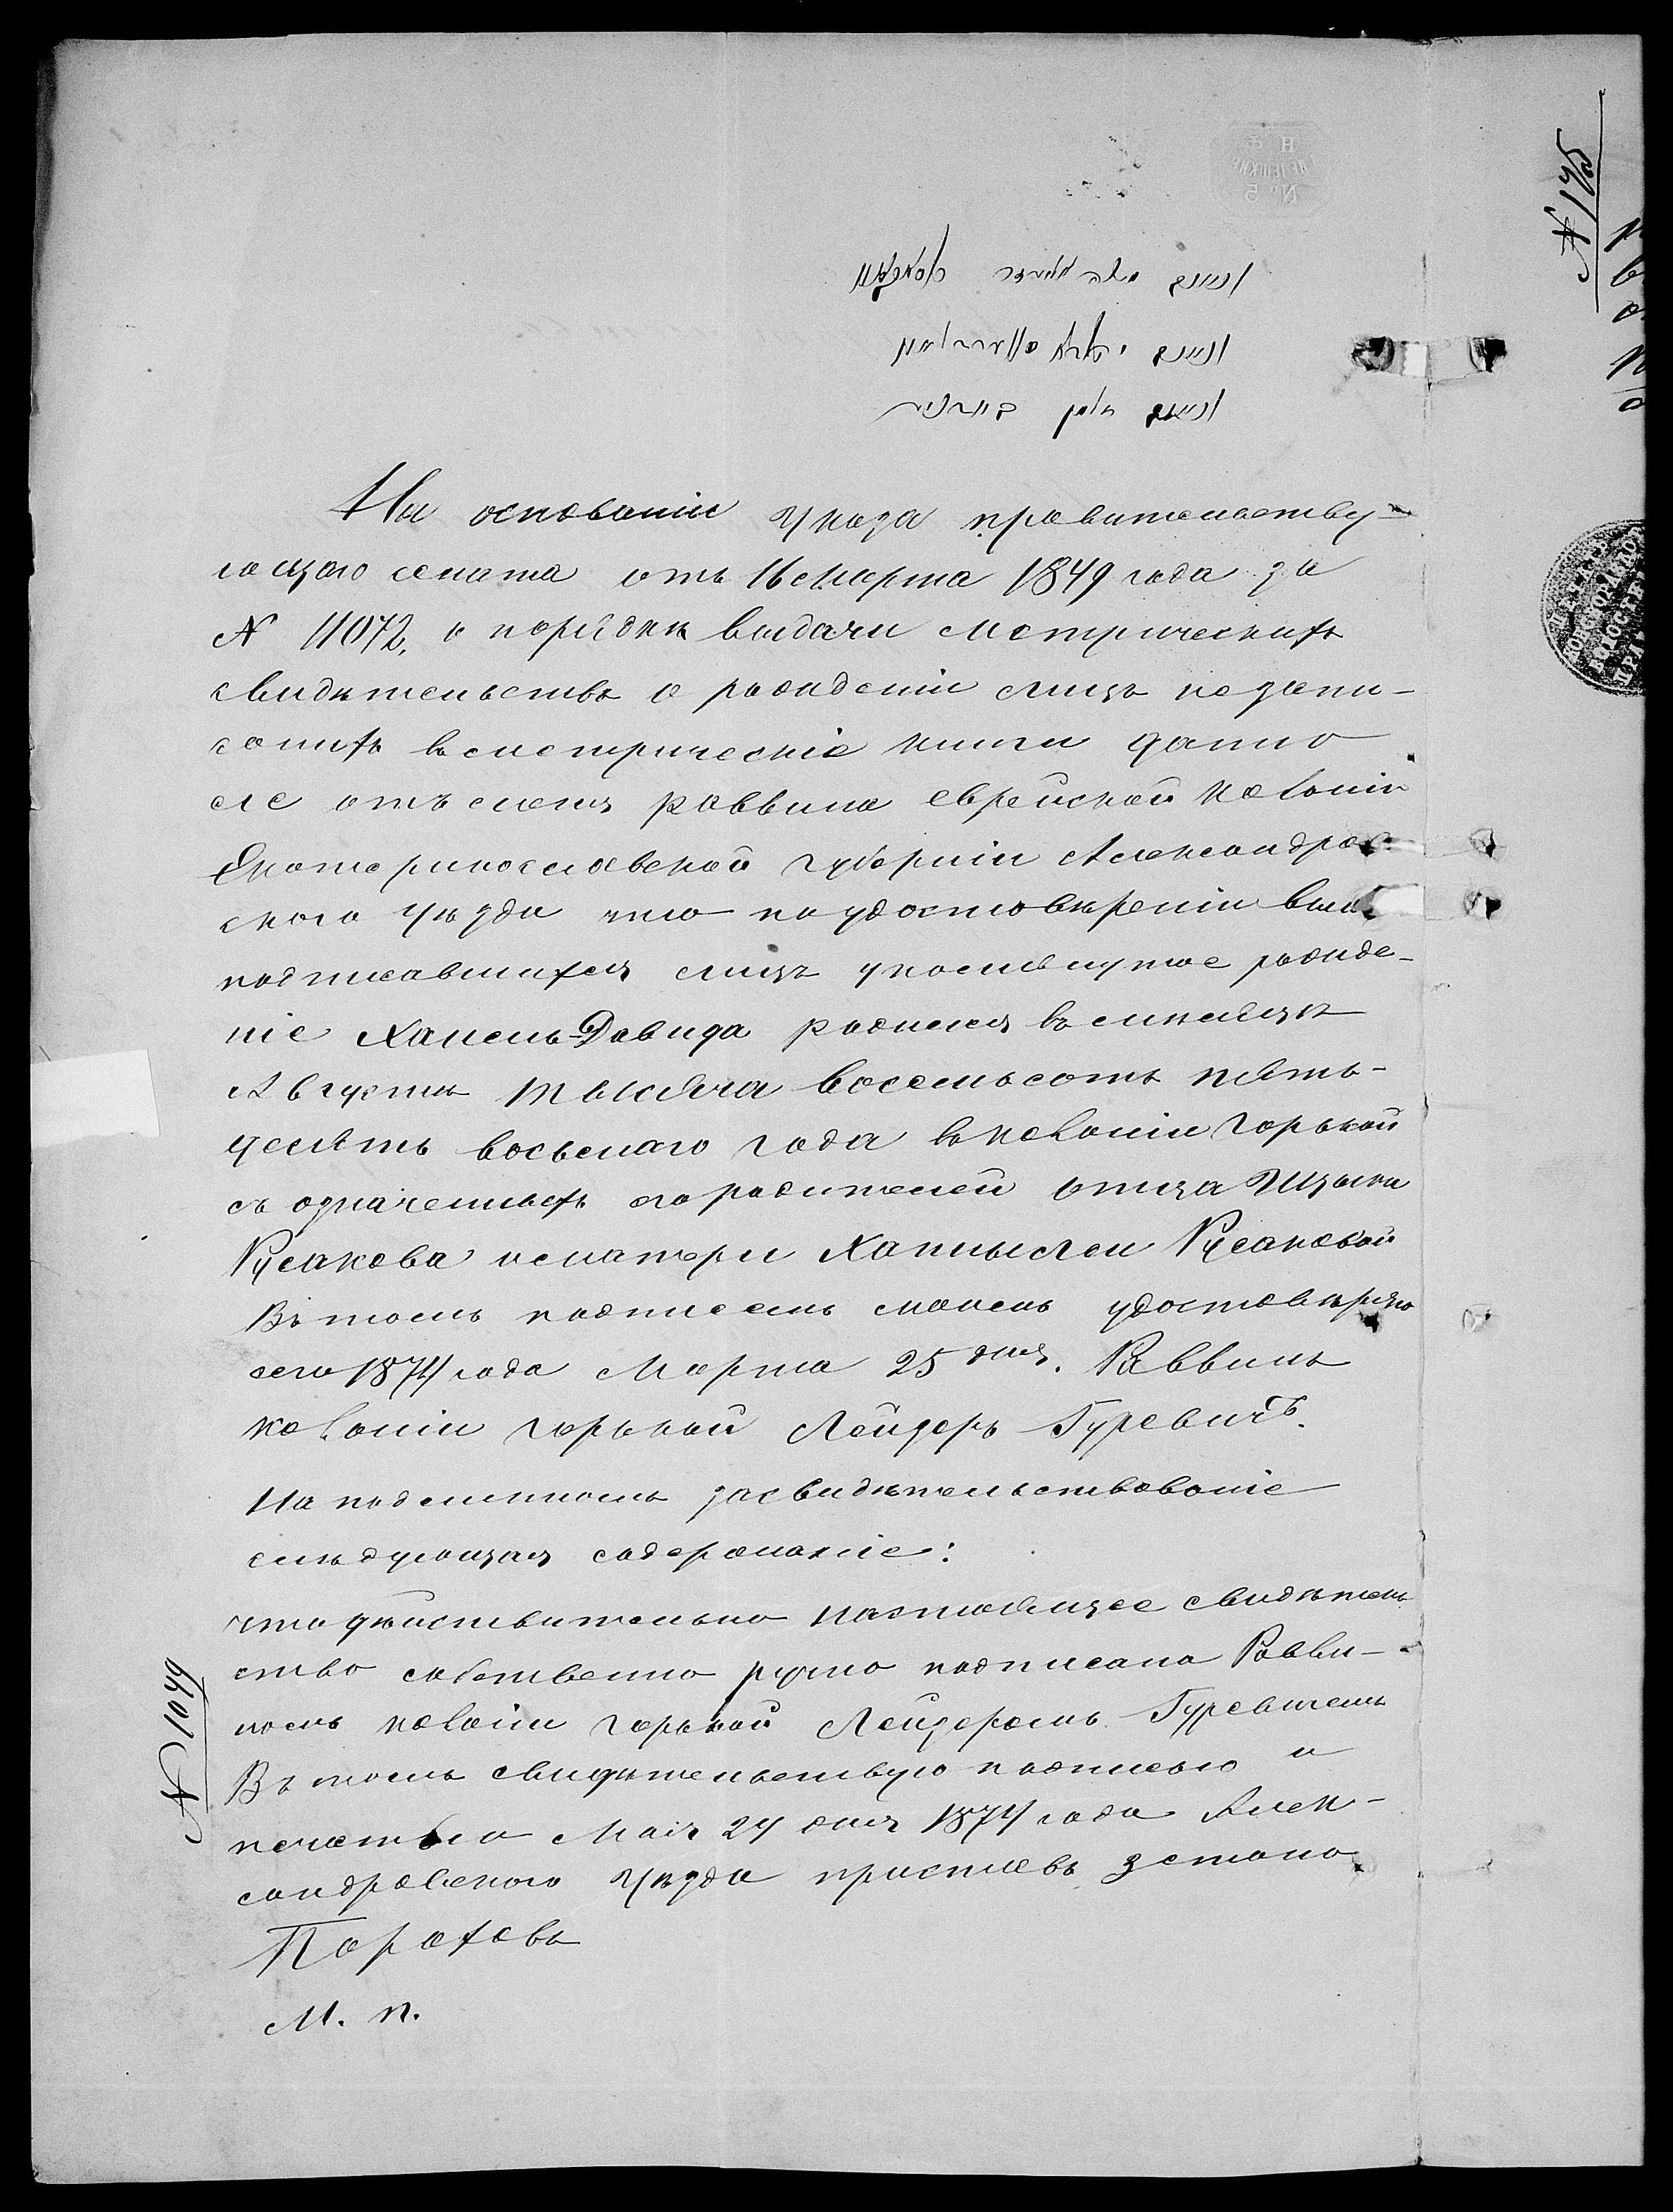 На основаніи указа правительству-
ющаго сената отъ 16 марта 1849 года за
№ 11072, о порядкѣ выдачи метрическихъ
свидѣтельствъ о рожденіи лицъ не запи-
саныхъ въ метрическіе книги дано
сіе отъ меня раввина еврейской колоніи
Екатеринославской губерніи Александров
скаго уѣзда что по удостовѣреніи выше
подписавшихся лицъ упомянутое рожде-
ніе Хаимъ-Давида родился въ мѣсяцѣ
Августѣ тысяча восемьсотъ пять-
десятъ восьмаго года въ колоніи Горькой
съ означенныхъ его родителей отца Ицыка
Русакова и матери Ханы Леи Русаковой
Въ томъ подписемъ моимъ удостовѣряю
сего 1874 года Марта 25 дня. Раввинъ
колоніи Горькой Лейзеръ Гуревичъ.
На подлинномъ засвидѣтельствованіе
слѣдующая содержаніе:
что дѣйствительно настоящее свидѣтель
ство собственно ручно подписана Равви-
номъ колоніи Горькой Лейзеромъ Гуревичемъ
Въ томъ свидѣтельствую подписью и
печатью Мая 24 дня 1874 года Алек-
сандровскаго уѣзда приставъ 3 стана
Пороховъ
М. п.
№ 1049
№ 175